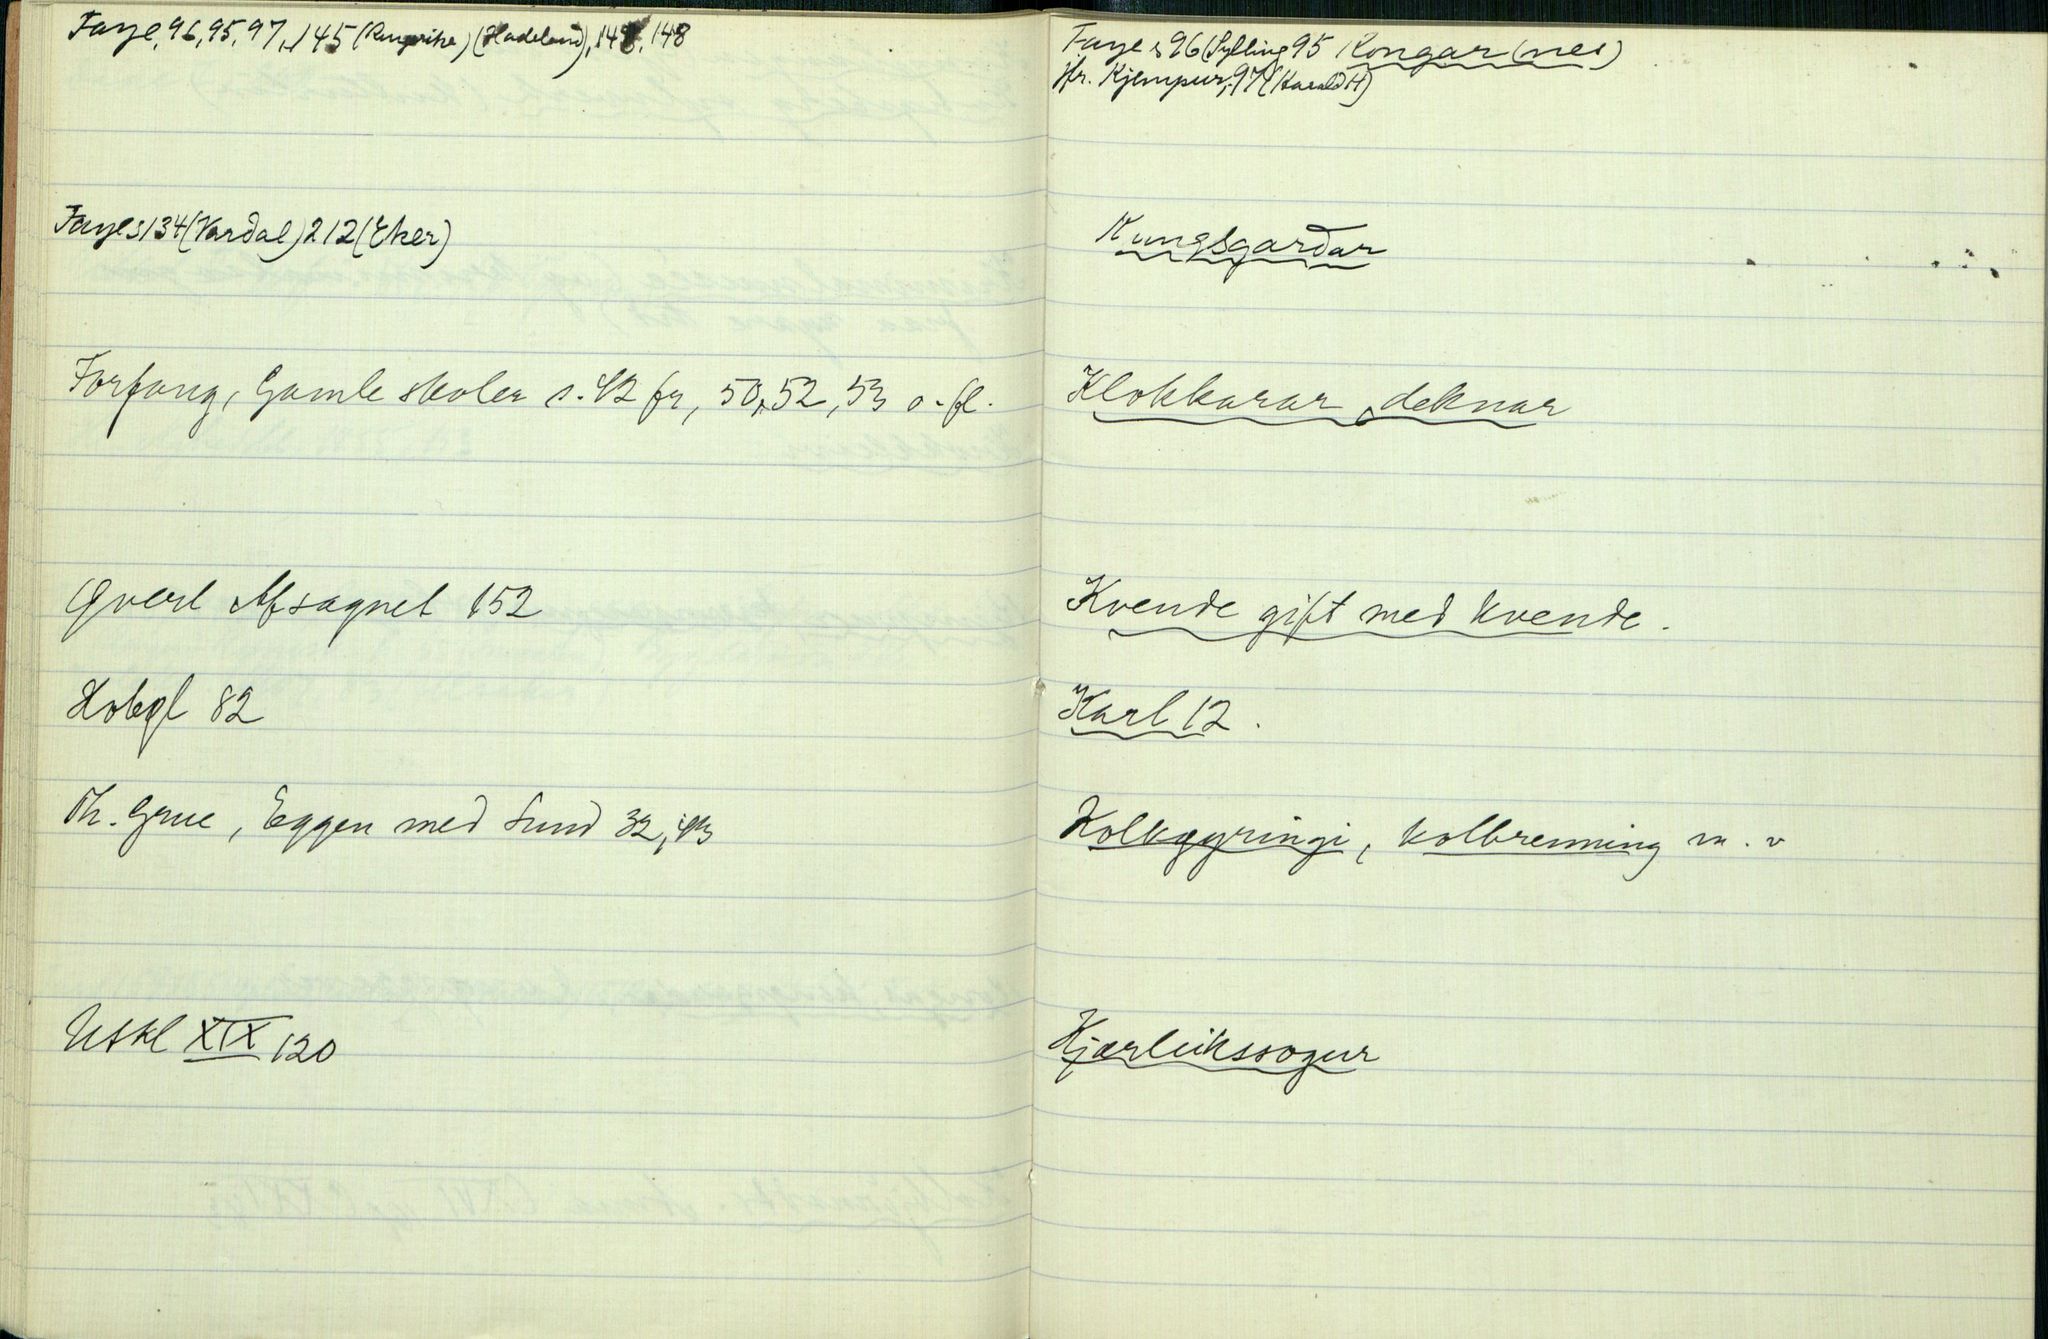 Faye, 96, 95, 97, 145 (Ringerike) (Hadeland), 148
Faye s 134 (Vardal) 212 (Eker)
Forfang, Gamle skoler s. 42 fr, 50, 52, 53 o. fl.
Qverl Afsagnet 152
Hobøl 82
Th. Grue, Eggen med Sund 32, 43
Utkl XIX 120
Faye s 96 (Sylling 95 Kongar (nes)
Jfr. Kjempur, 97 (Harald H)
Kungsgardar
Klokkarar, deknar
Kvende gift med kvende.
Karl 12.
Kolkøyringi, kolbrenning m. v
Kjærleikssogur